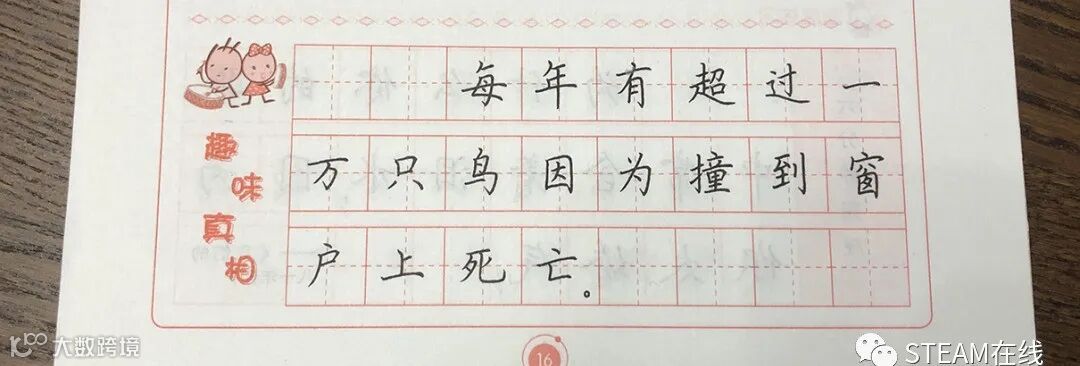 趣味真相
每年有超过一
万只鸟因为撞到窗
户上死亡。
16
大数跨境
STEAM在线